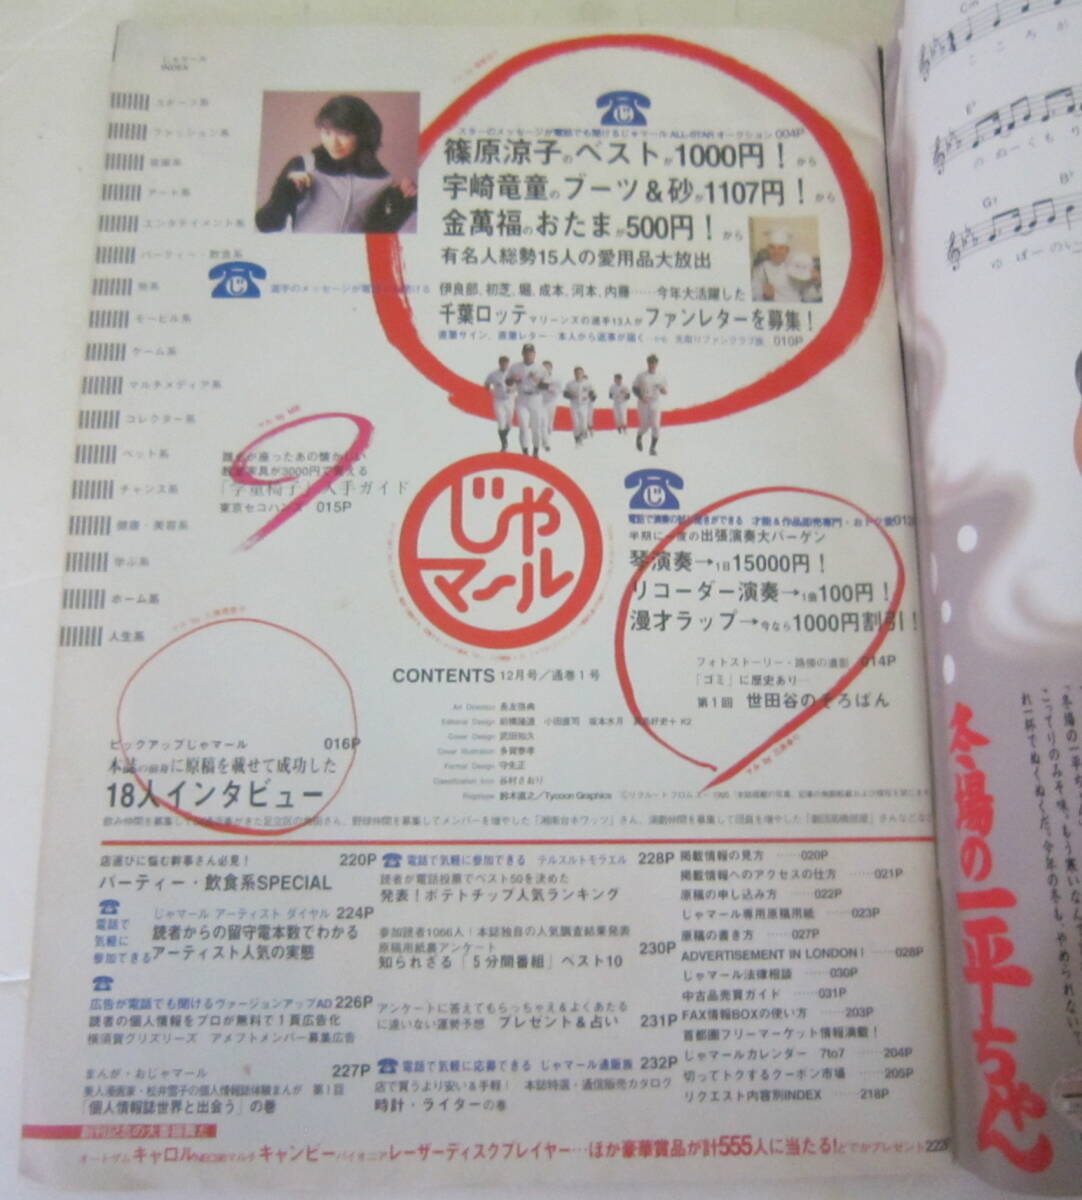 じゃマール
INDEX
スポーツ系
ファッション系
アート系
エンタテイメント系
パーティー・飲食系
旅系
モービル系
ゲーム系
マルチメディア系
コレクター系
ペット系
チャンス系
健康・美容系
学ぶ系
ホーム系
人生系
スターのメッセージが電話でも聞けるじゃマール ALL-STAR オークション 004P
篠原涼子のベストが1000円！から
宇崎竜童のブーツ＆砂が1107円！から
金萬福のおたまが500円！から
有名人総勢15人の愛用品大放出
選手のメッセージが
伊良部、初芝、堀、成本、河本、内藤……今年大活躍した
千葉ロッテマリーンズの選手13人がファンレターを募集！
直筆サイン、直筆レター…本人から返事が届く…かも 先取りファンクラブ系 010P
誰もが座ったあの懐かしい
教室家具が3000円で買える
「学童椅子」入手ガイド
東京セコハンズ 015P
じゃマール
電話で演奏の試し聞きができる 才能＆作品即売専門・おトク
半期に一度の出張演奏大バーゲン
琴演奏→1日15000円！
リコーダー演奏→1曲100円！
漫才ラップ→今なら1000円割引！
フォトストーリー・路傍の遺影 014P
「ゴミ」に歴史あり…
第1回 世田谷のそろばん
CONTENTS 12月号／通巻1号
Art Direction 長友啓典
Editorial Design 前橋隆道 小田直司 坂本水月
Cover Design 武田知久
Cover Illustration 多賀泰孝
Format Design 守先正
Classification Icon 谷村さおり
鈴木直之／Tycoon Graphics
ピックアップじゃマール 016P
本誌の前身に原稿を載せて成功した
18人インタビュー
店選びに悩む幹事さん必見！ 220P
パーティー・飲食系SPECIAL
電話で気軽に参加できる
じゃマール アーティスト ダイヤル 224P
読者からの留守電本数でわかる
アーティスト人気の実態
広告が電話でも聞けるヴァージョンアップAD 226P
読者の個人情報をプロが無料で1頁広告化
横須賀グリズリーズ アメフトメンバー募集広告
まんが・おじゃマール 227P
美人漫画家・松井雪子の個人情報誌体験まんが 第1回
「個人情報誌世界と出会う」の巻
電話で気軽に参加できる テルスルトモラエル 228P
読者が電話投票でベスト50を決めた
発表！ポテトチップ人気ランキング
参加読者1066人！本誌独自の人気調査結果発表
原稿用紙裏アンケート 230P
知られざる「5分間番組」ベスト10
アンケートに答えてもらっちゃえ＆よくあたる
に違いない運勢予想 プレゼント＆占い 231P
電話で気軽に応募できる じゃマール通販族 232P
店で買うより安い＆手軽！ 本誌特選・通信販売カタログ
時計・ライターの巻
掲載情報の見方 ……020P
掲載情報へのアクセスの仕方 ……021P
原稿の申し込み方 ……022P
じゃマール専用原稿用紙 ……023P
原稿の書き方 ……027P
ADVERTISEMENT IN LONDON！ ……028P
じゃマール法律相談 ……030P
中古品売買ガイド ……031P
FAX情報BOXの使い方 ……203P
首都圏フリーマーケット情報満載！
じゃマールカレンダー 7to7 ……204P
切ってトクするクーポン市場 ……205P
リクエスト内容別INDEX ……218P
創刊記念の大番振舞だ
オートザム キャロル NEC98マルチ キャンビー パイオニア レーザーディスクプレイヤー…ほか豪華賞品が計555人に当たる！どでかプレゼント222P
Cm
こころが
E♭
のぬーくもり
G7
B♭
ゆげーのい
冬場の一平ちゃん